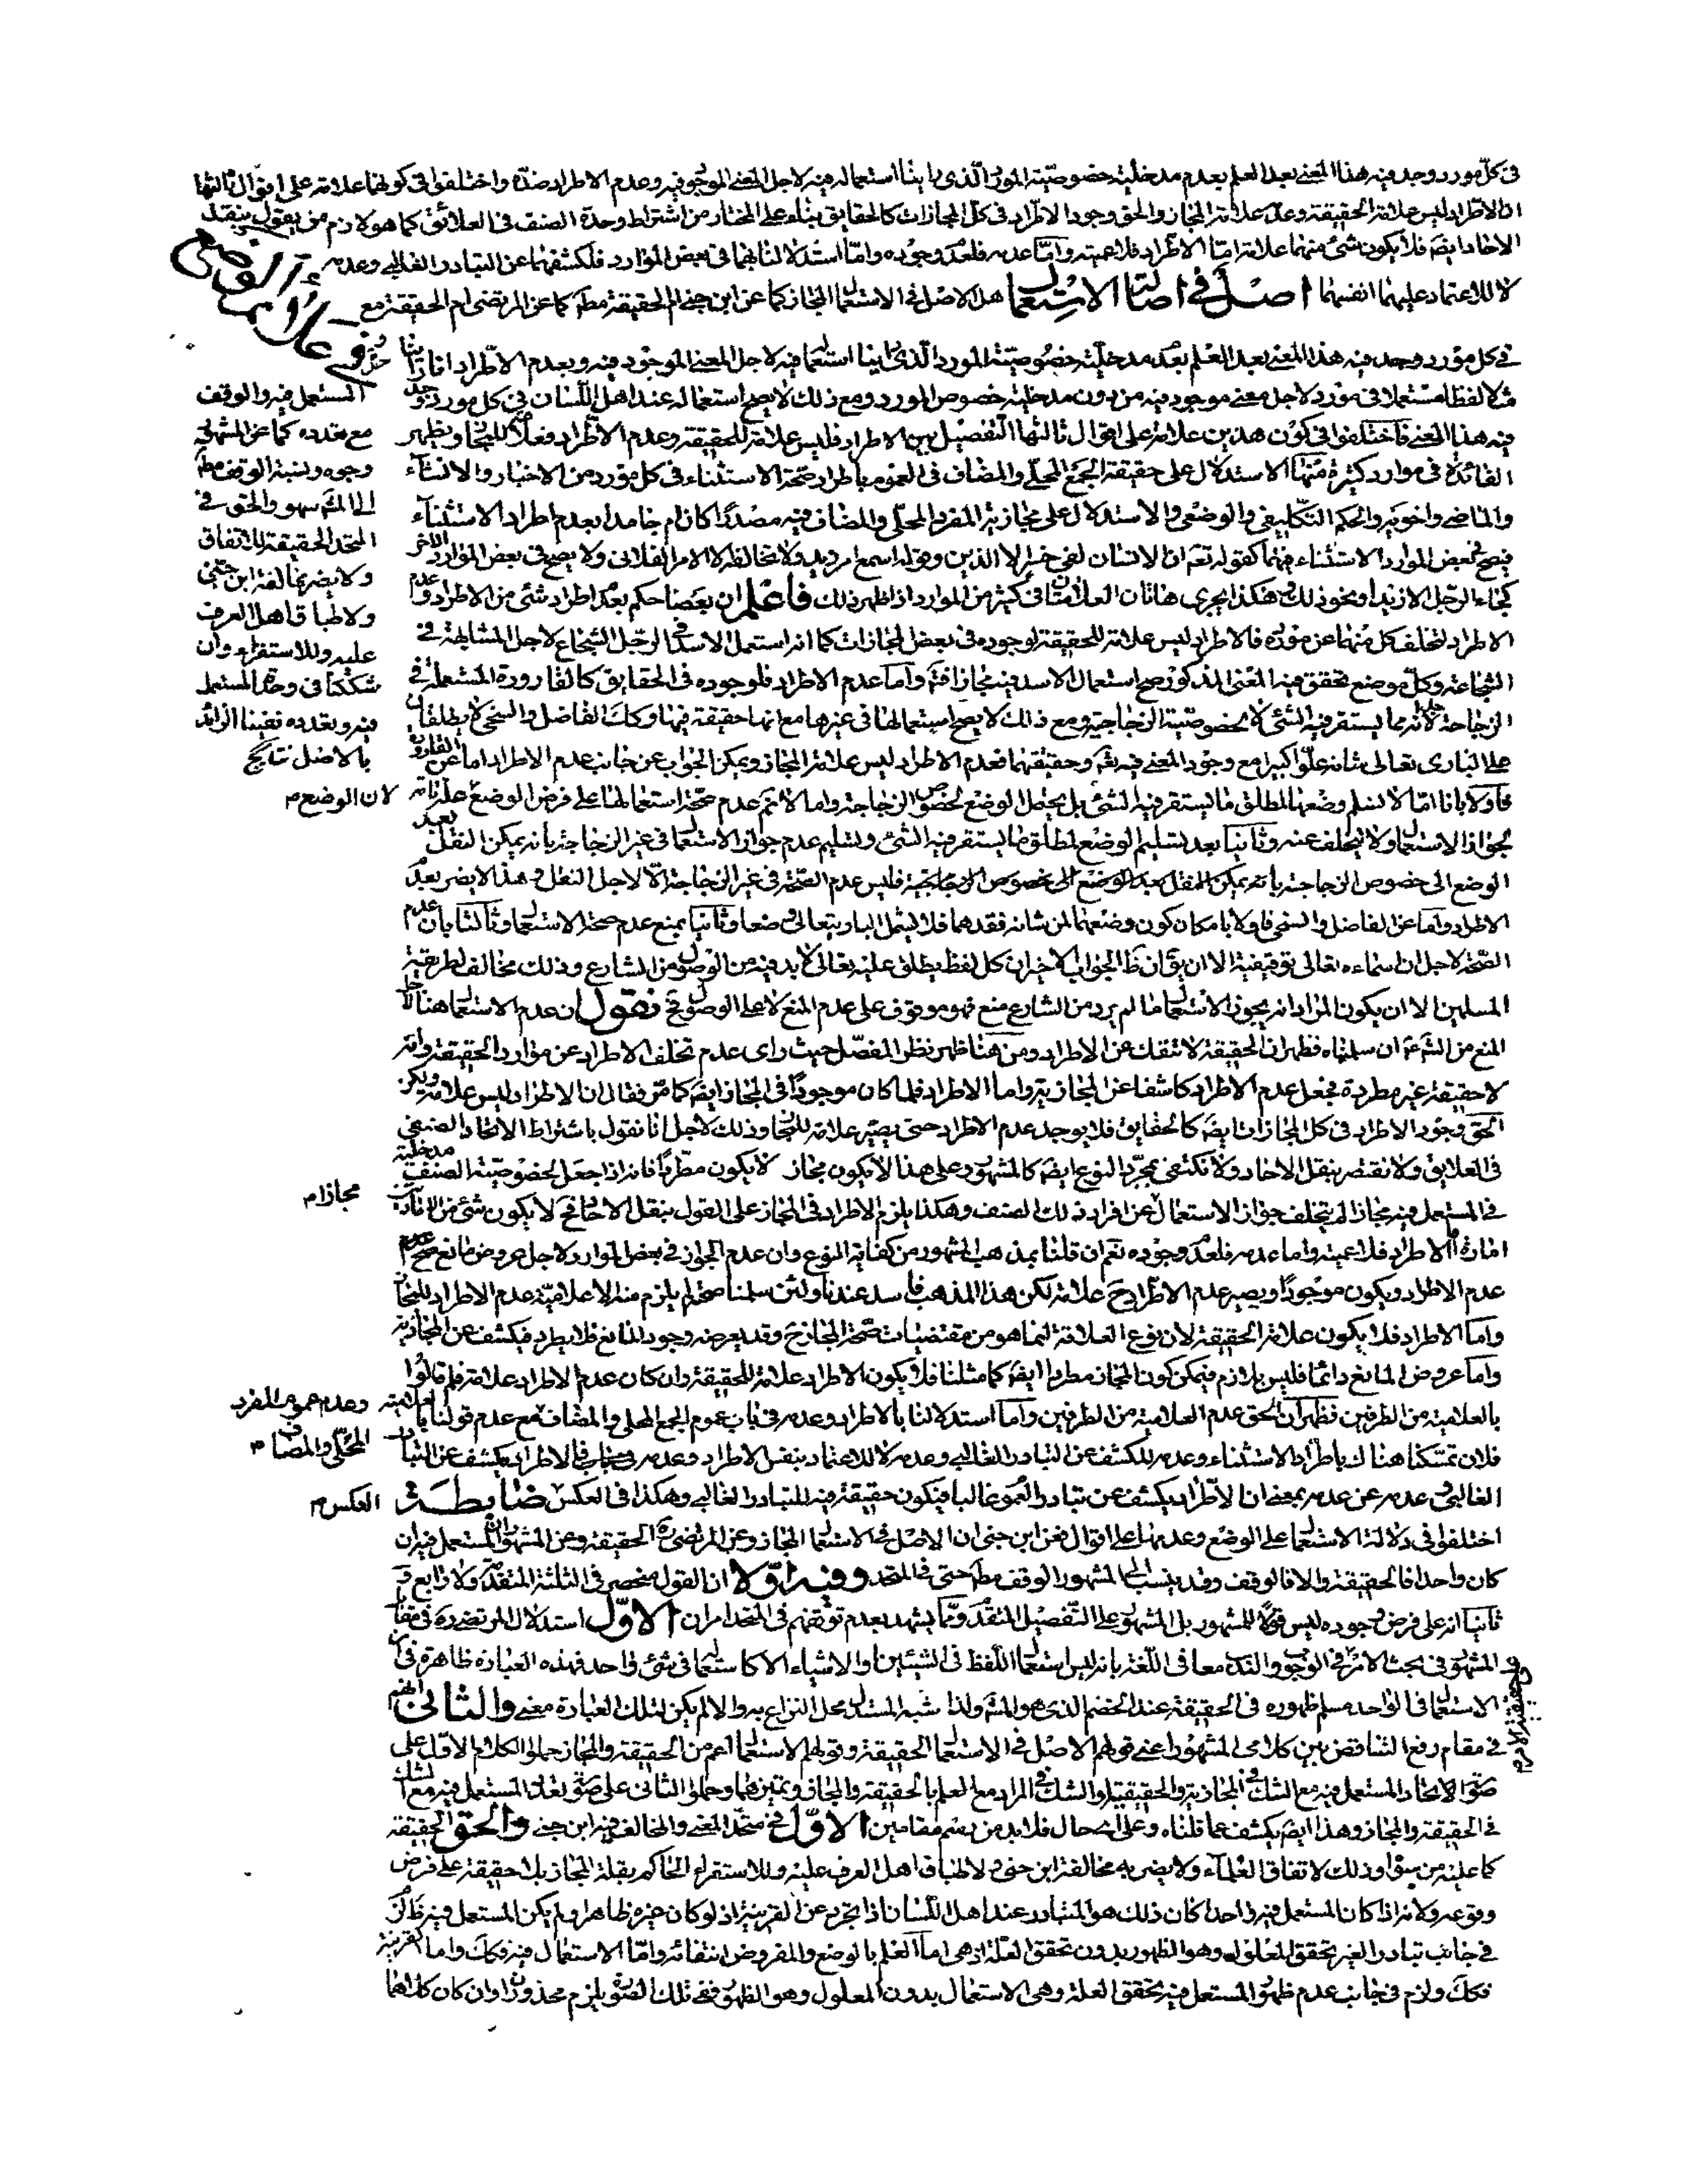 في كل مورد وجد فيه هذا المعنى بعد العلم بعدم مدخلية خصوصية المورد الذى راينا استعماله فيه لاجل المعنى الموجود فيه وعدم الاطراد ضده واختلفوا فى كونهما علامة على اقوال ثالثها
ان الاطراد ليس علامة الحقيقة وعدمه علامة المجاز والحق وجود الاطراد فى كل المجازات كالحقايق بناء على المختار من اشتراط وحدة الصنف فى العلائق كما هو لازم من يقول بنقل
الاحاد ايضا فلا يكون شئ منهما علامة امّا الاطراد فلاعميته وامّا عدمه فلعدم وجوده وامّا استدلالنا بهما فى بعض الموارد فلكشفهما عن التبادر الغالبى وعدمه
لا للاعتماد عليهما انفسهما اصل في اصالة الاستعمال هل الاصل فى الاستعمال المجاز كما عن ابن جنى ام الحقيقة مط كما عن المرتضى ام الحقيقة مع
في علائم الوضع
فى كل مورد وجد فيه هذا المعنى بعد العلم بعدم مدخلية خصوصية المورد الذى راينا استعماله فيه لاجل المعنى الموجود فيه وبعدم الاطراد انا راينا
مثلا لفظا مستعملا فى مورد لاجل معنى موجود فيه من دون مدخلية خصوص المورد ومع ذلك لا يصح استعماله عند اهل اللسان فى كل مورد وجد
فيه هذا المعنى فاختلفوا فى كون هذين علامة على اقوال ثالثها التفصيل بين الاطراد فليس علامة للحقيقة وعدم الاطراد فعلامة للمجاز ويظهر
الفائدة فى موارد كثيرة منها الاستدلال على حقيقة الجمع المحلى والمضاف فى العموم باطراد صحة الاستثناء فى كل مورد من الاخبار والانشاء
والماضى واخويه والحكم التكليفى والوضعى والاستدلال على مجازية المفرد المحلى والمضاف فيه مصدرا كان ام جامدا بعدم اطراد الاستثناء
فيصح فى بعض الموارد الاستثناء فيهما كقوله تعم ان الانسان لفى خسر الا الذين وقوله اسمع امر زيد ولا تخالفه الا الامر الفلانى ولا يصح فى بعض الموارد الاخر
كجاء الرجل الا زيد او نحو ذلك وهكذا يجرى هاتان العلامتان فى كثير من الموارد اذا ظهر ذلك فاعلم ان بعضا حكم بعدم اطراد شئ من الاطراد وعدم
الاطراد لتخلف كل منهما عن مؤداه فالاطراد ليس علامة للحقيقة لوجوده فى بعض المجازات كما انه استعمل الاسد فى الرجل الشجاع لاجل المشابهة فى
الشجاعة وكل موضع تحقق فيه المعنى المذكور صح استعمال الاسد فيه مجازا فتم واما عدم الاطراد فلوجوده فى الحقايق كالقارورة المستعملة فى
الزجاجة لانه مما يستقر فيه الشئ لا لخصوصية الزجاجية ومع ذلك لا يصح استعمالها فى غيرها مع انها حقيقة فيها وكك الفاضل والسخى لا يطلقان
على البارى تعالى شانه علوا كبيرا مع وجود المعنى فيه تعم وحقيقتهما فعدم الاطراد ليس علامة المجاز ويمكن الجواب عن جانب عدم الاطراد اما عن القارورة
فاولا بانا امّا لا نسلم وضعها لمطلق ما يستقر فيه الشئ بل يحتمل الوضع لخصوص الزجاجة واما لا نم عدم صحة استعمالها على فرض الوضع
بجواز الاستعمال ولا يتخلف عنه وثانيا بعد تسليم الوضع لمطلق ما يستقر فيه الشئ وتسليم عدم جواز الاستعمال فى غير الزجاجة بانه يمكن النقل بعد
الوضع الى خصوص الزجاجة بانه يمكن النقل بعد الوضع الى خصوص الزجاجية فليس عدم الصحة فى غير الزجاجة الا لاجل النقل وهذا لا يضر بعدم
الاطراد واما عن الفاضل والسخى فاولا بامكان كون وضعهما لمن شانه فقدهما فلا يشمل البارى تعالى وضعا وثانيا بمنع عدم صحة الاستعمال وثالثا بان عدم
الصحة لاجل ان اسماءه تعالى توقيفية الا ان يق ان ظ الجواب الاخير ان كل لفظ يطلق عليه تعالى لا بد فيه من الوصول من الشارع وذلك مخالف لطريقة
المسلمين الا ان يكون المراد انه يجوز الاستعمال ما لم يرد من الشارع منع فهو موقوف على عدم المنع لا على الوصول فح نقول ان عدم الاستعمال هنا لاجل
المنع من الشرع ان سلمناه فظهر ان الحقيقة لا تنفك عن الاطراد ومن هنا ظهر نظر المفصل حيث راى عدم تخلف الاطراد عن موارد الحقيقة وانه
لا حقيقة غير مطردة فجعل عدم الاطراد كاشفا عن المجازية واما الاطراد فلما كان موجودا فى المجاز ايضا كما مر فقال ان الاطراد ليس علامة ولكن
الحق وجود الاطراد فى كل المجازات ايضا كالحقايق فلا يوجد عدم الاطراد حتى يصير علامة للمجاز وذلك لاجل انا نقول باشتراط الاتحاد الصنفى
فى العلايق ولا نقتصر بنقل الاحاد ولا نكتفى بمجرد النوع ايضا كالمشهور وعلى هذا لا يكون مجاز لا يكون مطردا فانه اذا جعل لخصوصية الصنف مدخلية
فى المستعمل فيه مجازا لم يتخلف جواز الاستعمال عن افراد ذلك الصنف وهكذا يلزم الاطراد فى المجاز على القول بنقل الاحاد فح لا يكون شئ من
امارة اما الاطراد فلاعميته واما عدمه فلعدم وجوده نعم ان قلنا بمذهب المشهور من كفاية النوع وان عدم الجواز فى بعض الموارد لاجل عروض مانع صح
عدم الاطراد ويكون موجودا ويصير عدم الاطراد ح علامة لكن هذا المذهب فاسد عندنا ولئن سلمنا صحته لم يلزم منه الا علامية عدم الاطراد للمجاز
واما الاطراد فلا يكون علامة الحقيقة لان نوع العلاقة انما هو من مقتضيات صحة المجاز ح وقد يعرضه وجود المانع فلا يطرد فيكشف عن المجازية
واما عروض المانع دائما فليس بلازم فيمكن كون المجاز مطردا ايضا كما مثلنا فلا يكون الاطراد علامة للحقيقة وان كان عدم الاطراد علامة فلم قالوا
بالعلامية من الطرفين فظهر ان الحق عدم العلامية من الطرفين واما استدلالنا بالاطراد وعدمه فى باب عموم الجمع المحلى والمضاف مع عدم قولنا بالعلامية
فلان تمسكنا هناك باطراد الاستثناء وعدمه للكشف عن التبادر الغالبى وعدمه لا للاعتماد بنفس الاطراد وعدمه فالاطراد يكشف عن التبادر
الغالبى وعدمه عن عدمه بمعنى ان الاطراد يكشف عن تبادر العموم غالبا فيكون حقيقة فيه للتبادر الغالبى وهكذا فى العكس ضابطة
اختلفوا فى دلالة الاستعمال على الوضع وعدمها على اقوال فعن ابن جنى ان الاصل فى الاستعمال المجاز وعن المرتضى ره الحقيقة وعن المشهور ان المستعمل فيه ان
كان واحدا فالحقيقة والا فالوقف وقد ينسب الى المشهور الوقف مط حتى فى المتحد وفيه اولا ان القول منحصر فى الثلثة المتقدمة ولا رابع
ثانيا انه على فرض وجوده ليس قولا للمشهور بل المشهور على التفصيل المتقدم ومما يشهد بعدم توقفهم فى المتحد امران الاول استدلال المرتضى ره فى مقابل
المشهور فى بحث الامر فى الوجوب والندب معا فى اللغة بانه ليس استعمال اللفظ فى الشيئين والاشياء الا كاستعماله فى شئ واحد فهذه العبارة ظاهرة فى ان
الاستعمال فى الواحد مسلم ظهوره فى الحقيقة عند الخصم الذى هو المش ولذا شبه المستدل محل النزاع به والا لم يكن لتلك العبارة معنى والثانى انهم
فى مقام رفع التناقض بين كلامى المشهور اعنى قولهم الاصل فى الاستعمال الحقيقة وقولهم الاستعمال اعم من الحقيقة والمجاز حملوا الكلام الاول على
صورة الاتحاد المستعمل فيه مع الشك فى المجازية والحقيقية او الشك فى المراد مع العلم بالحقيقة والمجاز وتميزهما وحملوا الثانى على صورة تعدد المستعمل فيه مع الشك
فى الحقيقة والمجاز وهذا ايضا يكشف عما قلناه وعلى اى حال فلا بد من رسم مقامين الاول فى متحد المعنى والمخالف فيه ابن جنى والحق الحقيقة
كما عليه من سوا وذلك لاتفاق العلماء ولا يضر به مخالفة ابن جنى ولاطباق اهل العرف عليه وللاستقراء الحاكم بقلة المجاز بلا حقيقة على فرض
وقوعه ولانه اذا كان المستعمل فيه واحدا كان ذلك هو المتبادر عند اهل اللسان اذا تجرد عن القرينة اذ لو كان غيره ظاهرا ولم يكن المستعمل فيه ظاهرا لزم
فى جانب تبادر الغير تحقق المعلول وهو الظهور بدون تحقق العلة اذ هى اما العلم بالوضع والمفروض انتفائه وامّا الاستعمال فيه فكك واما القرينة
فكك ولزم فى جانب عدم ظهور المستعمل فيه تحقق العلة وهى الاستعمال بدون المعلول وهو الظهور ففى تلك الصورة يلزم محذوران وان كان كلاهما
المستعمل فيه والوقف
مع تعدده كما عن المشهور
وجوه ونسبة الوقف مط
الى المش سهو والحق فى
المتحد الحقيقة للاتفاق
ولا يضر مخالفة ابن جنى
ولاطباق اهل العرف
عليه وللاستقراء وان
شككنا فى وحدة المستعمل
فيه وتعدده نفينا الزائد
بالاصل نتايج
لان الوضع م
مجازا م
وعدم عموم المفرد
المحلى والمضاف م
العكس م